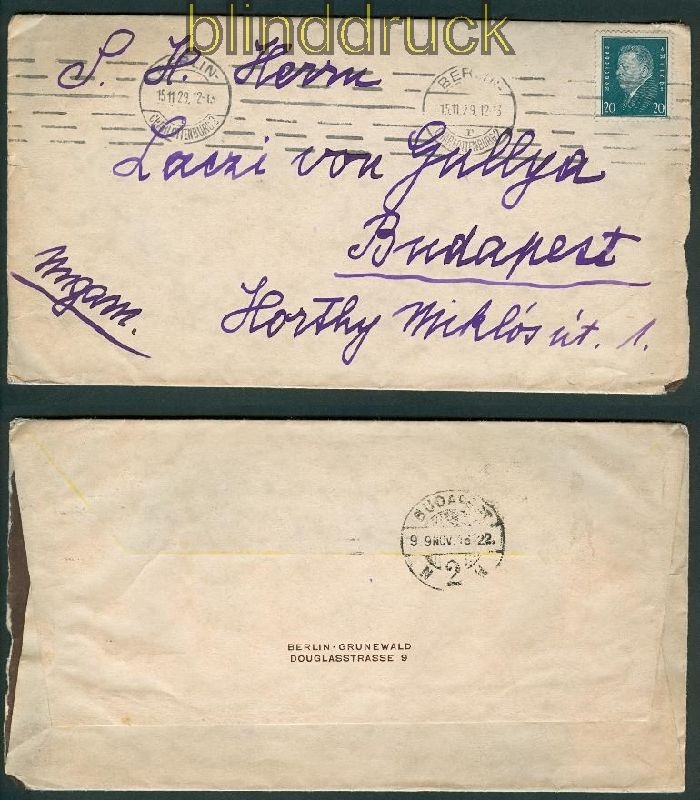 blinddruck
S. H. Herrn
BERLIN-
15.11.29. 12-13
CHARLOTTENBURG 2
BERLIN-
15.11.29. 12-13
r
CHARLOTTENBURG 2
DEUTSCHES REICH
20 20
Laczi von Gullya
Budapest
Ungarn.
Horthy Miklós út. 1.
BUDAPEST
9 29NOV.16 22.
N 2 N
BERLIN-GRUNEWALD
DOUGLASSTRASSE 9